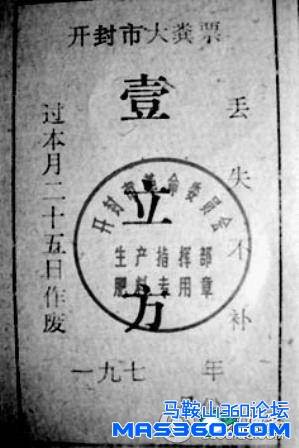 开封市大粪票
壹立方
丢失不补
过本月二十五日作废
开封市革命委员会
生产指挥部
肥料专用章
一九七 年
马鞍山360论坛
MAS360.COM